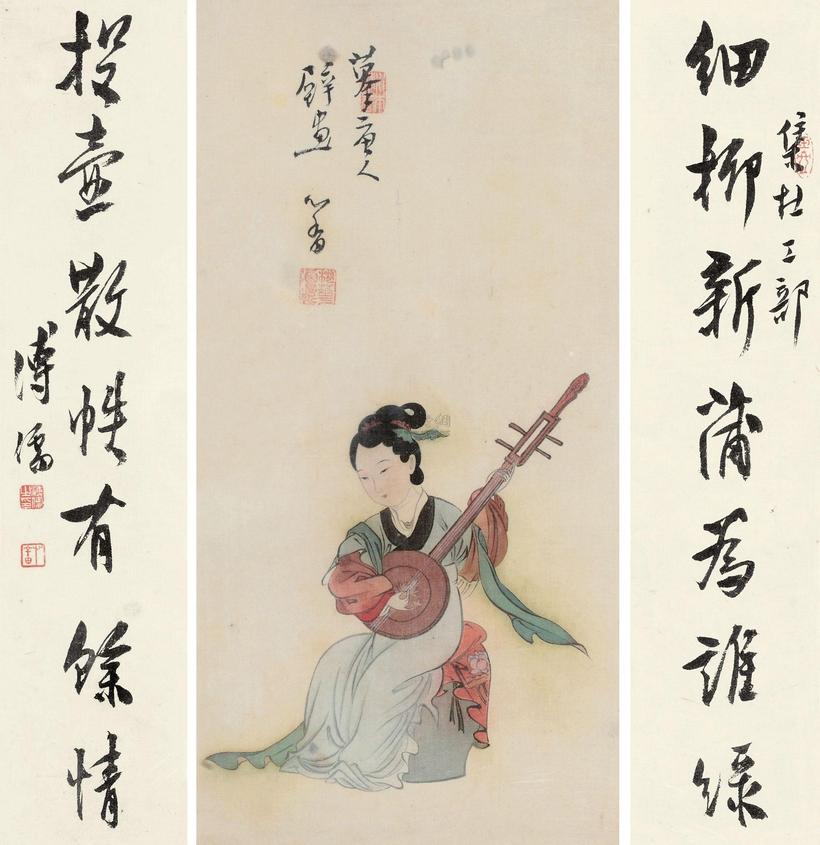 細柳新蒲為誰綠
集杜工部
摹唐人
壁畫 心畬
投壺散帙有餘情
溥儒